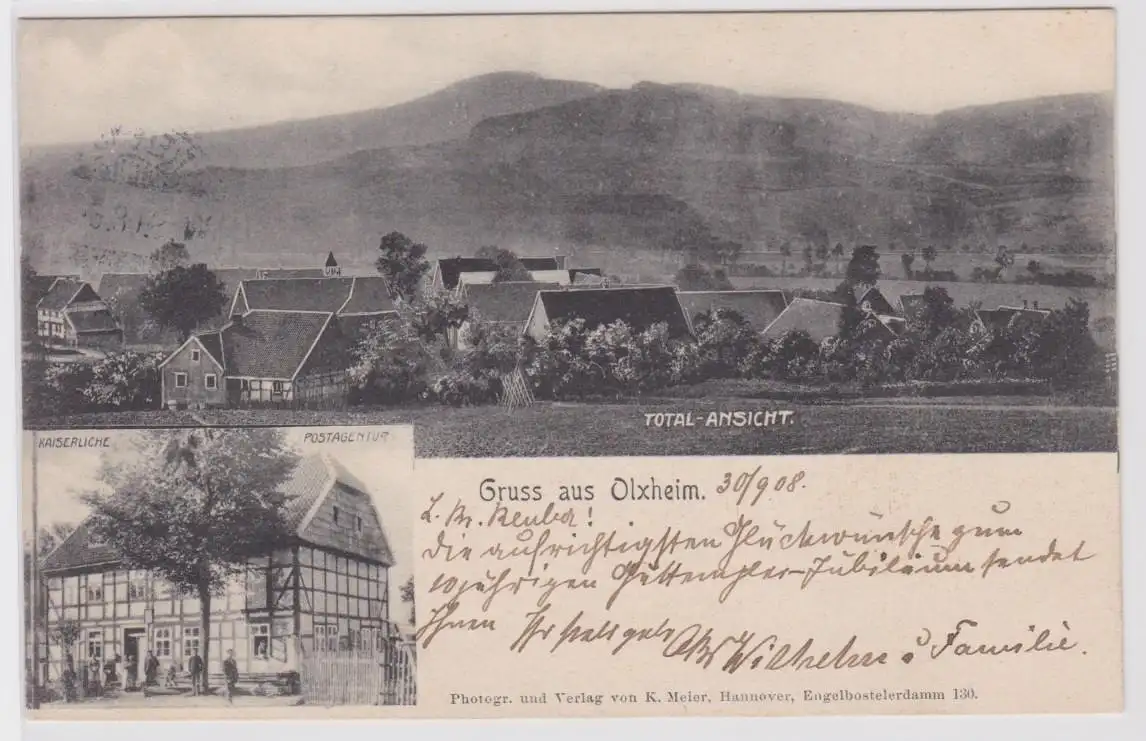 TOTAL-ANSICHT.
KAISERLICHE POSTAGENTUR
Gruss aus Olxheim. 30/9 08.
L. Br. !
Die aufrichtigsten Glückwünsche zum
10jährigen Guttempler-Jubiläum sendet
Ihnen Ihr stets
Wilhelm u. Familie.
Photogr. und Verlag von K. Meier, Hannover, Engelbostelerdamm 130.